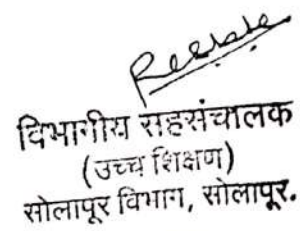 विभागीय सहसंचालक
(उच्च शिक्षण)
सोलापूर विभाग, सोलापूर.